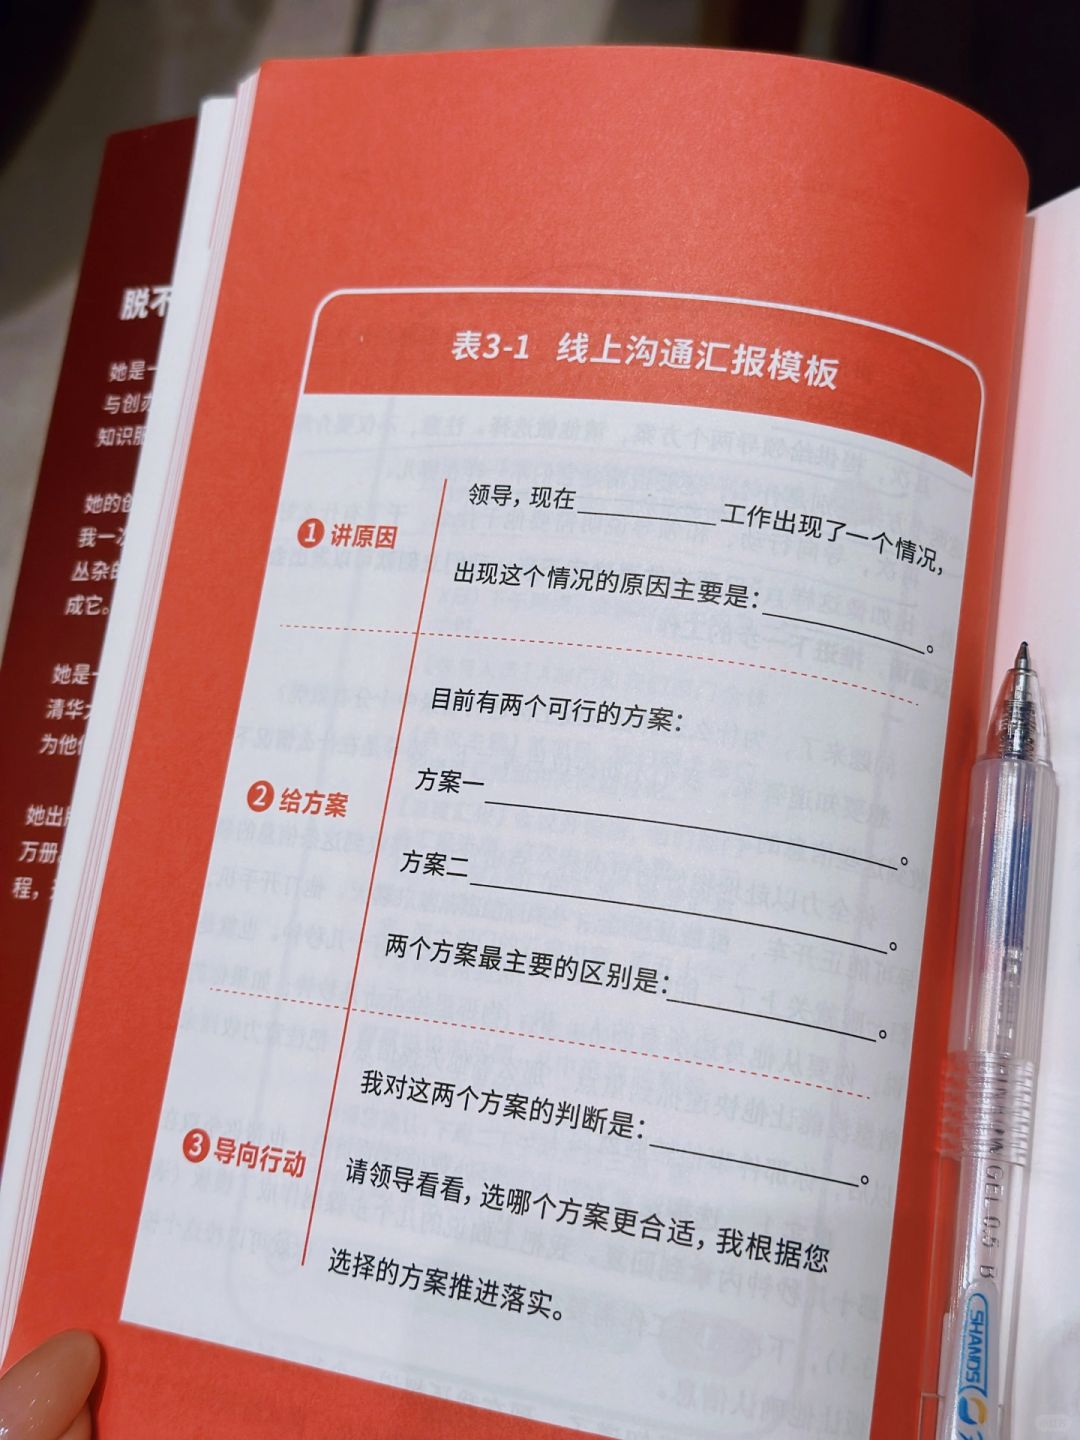 表3-1 线上沟通汇报模板
1 讲原因
领导，现在______工作出现了一个情况，
出现这个情况的原因主要是：______。
2 给方案
目前有两个可行的方案：
方案一______。
方案二______。
两个方案最主要的区别是：______。
3 导向行动
我对这两个方案的判断是：______。
请领导看看，选哪个方案更合适，我根据您
选择的方案推进落实。
脱不
她是一
与创办
知识服
她的创
我一次
丛杂的
成它。
她是一
清华大
为他们
她出版
万册。
程，
GEL 0.5 B
SHANDS